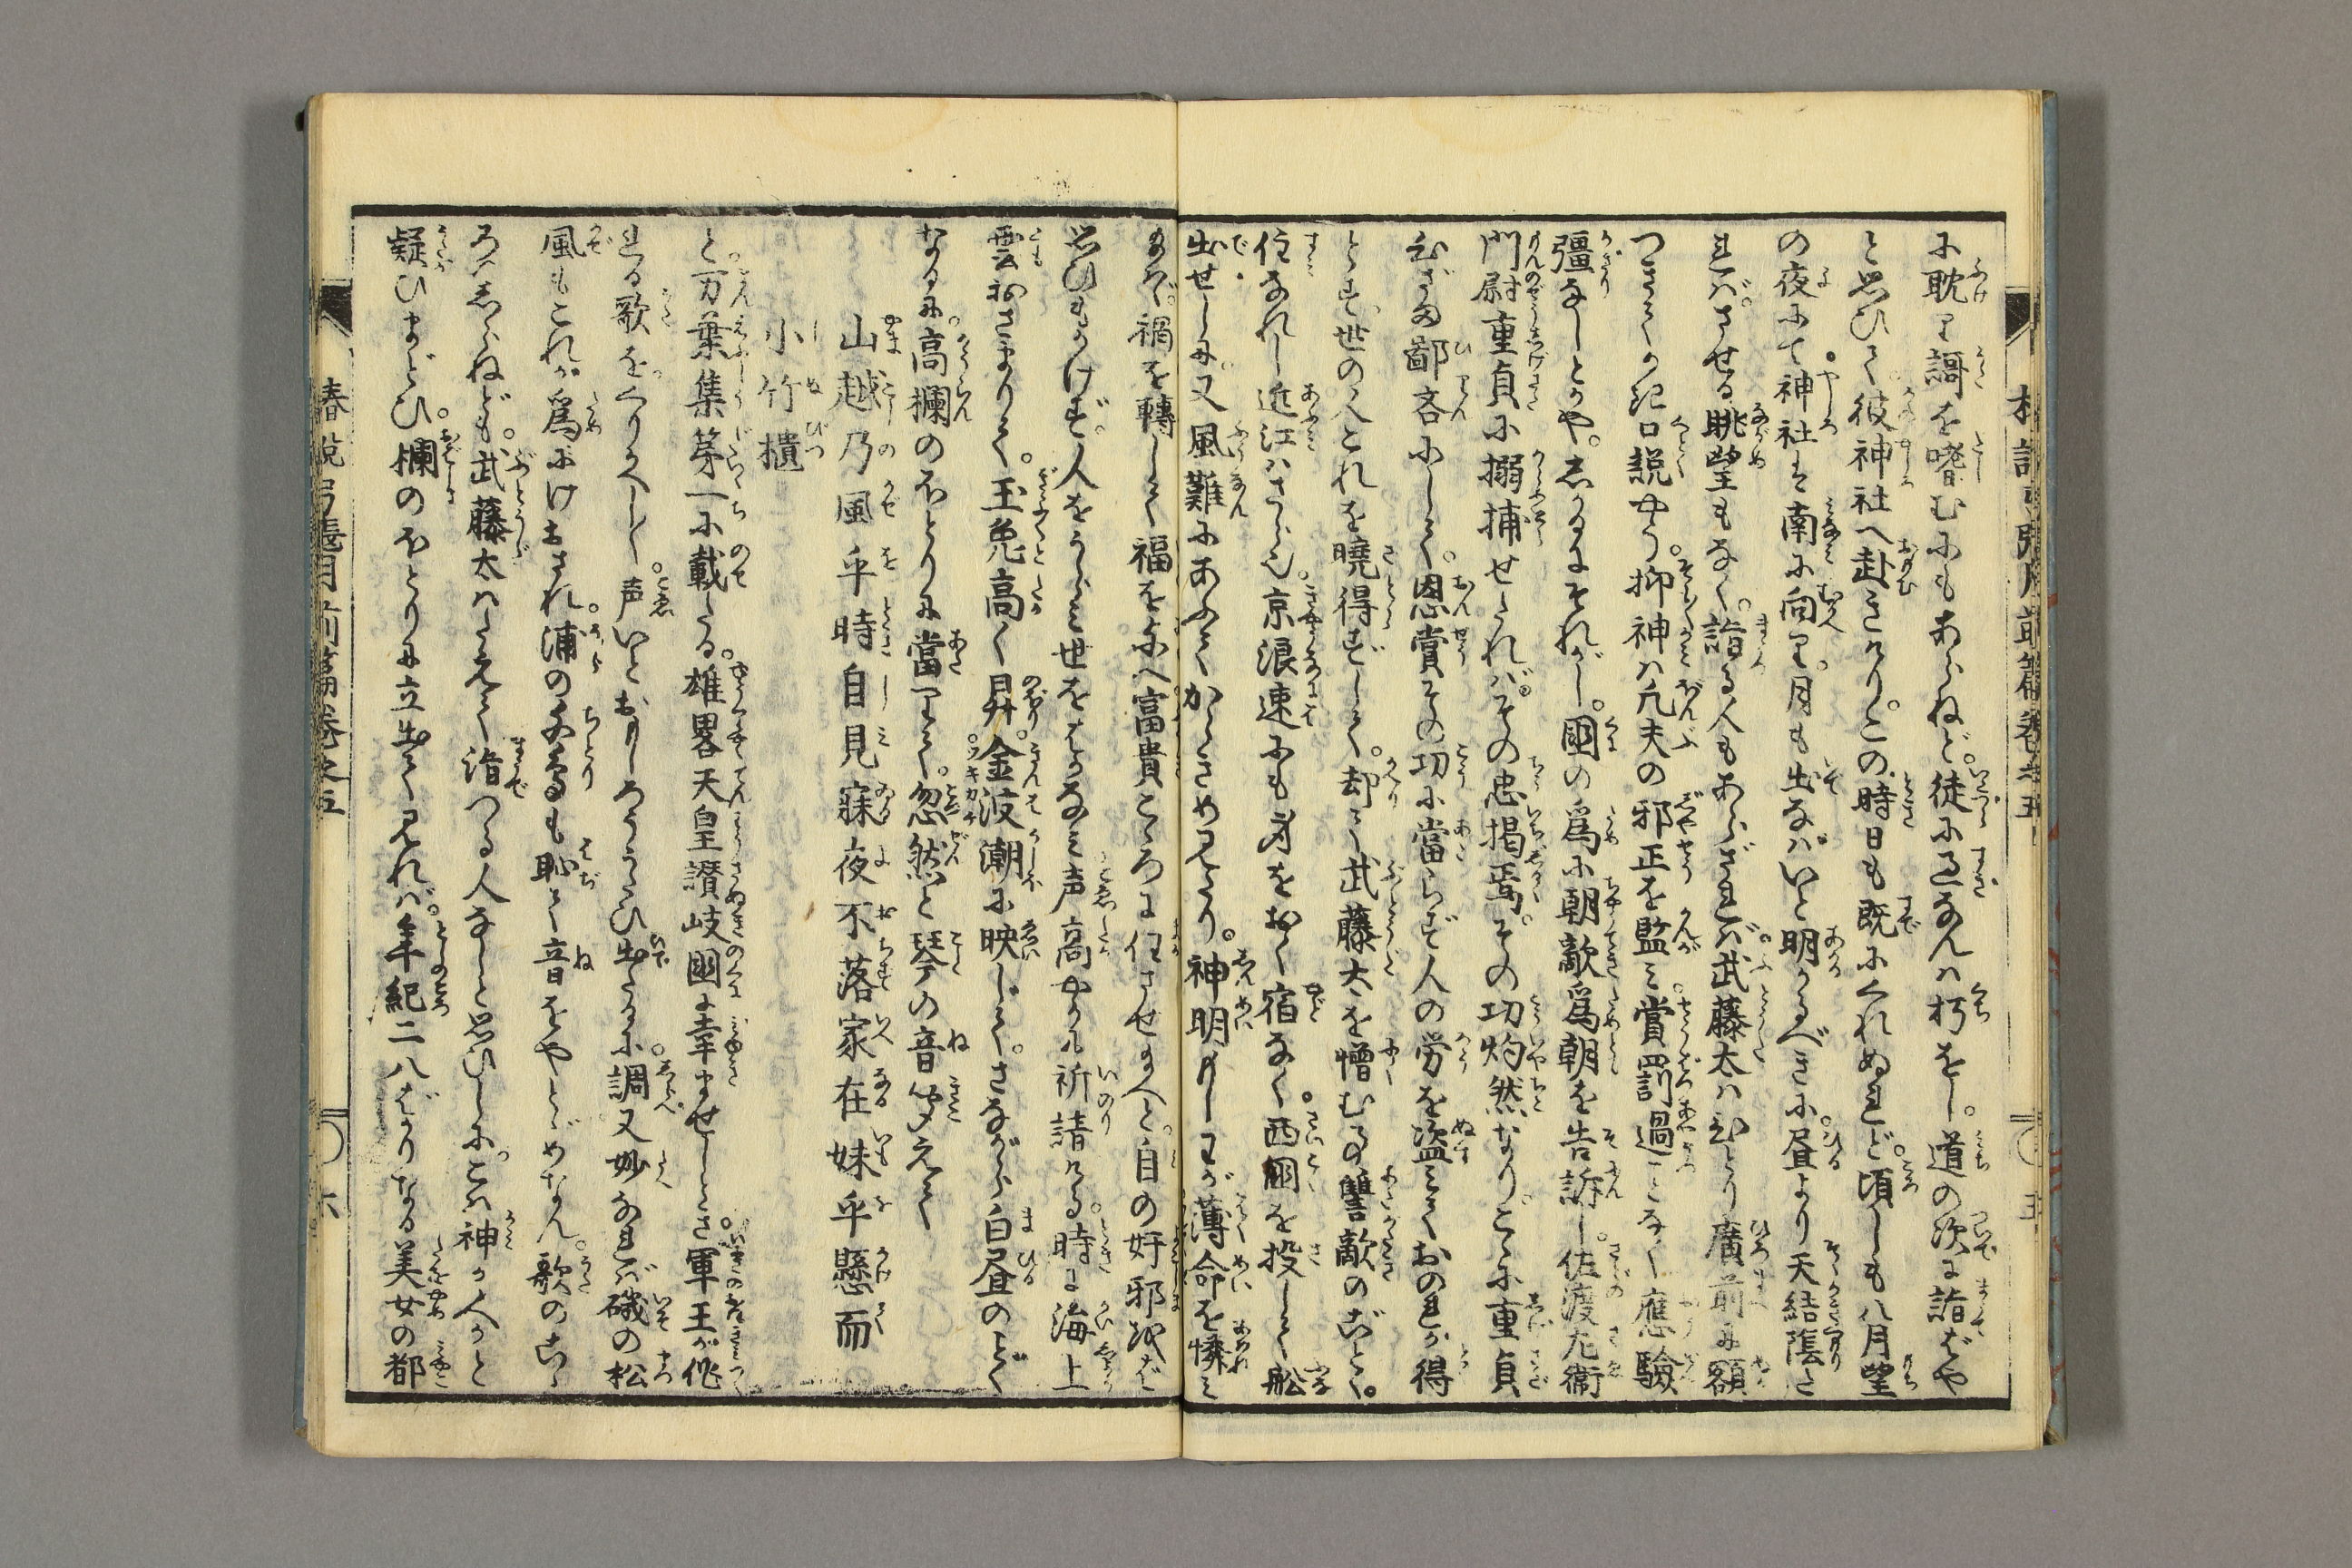 に耽り謌を嗜むにもあらねど。徒に過なんは朽をし。道の次に詣ばや
と思ひて彼神社へ赴きけり。この時日も既にくれぬれど。頃しも八月望
の夜にて神社は南に向り。月も出なばいと明かるべきに。昼より天結陰た
れば。させる眺望もなく。詣る人もあらざれば。武藤太はひとり廣前に額
つきて。口説やう。抑神は凡夫の邪正を監み。賞罰過ことなく應驗
彊なしとかや。しかるにそれがし。國の爲に朝敵爲朝を告訴し。佐渡尢衞
門尉重貞に搦捕せたれば。その忠掲焉。その功灼然なり。こゝに重貞
ひざま鄙吝にして。恩賞その功に當らず人の労を盗みておのれが得
とす。世の人これを曉得ずして。却て武藤太を憎むこと讐敵のごとく。
住なれし近江はさら也。京浪速にも身をおく宿なく。西國を投して舩
出せしに。又風難にあふてからきめ見たり。神明もしわが薄命を憐み
給はゞ。禍を轉して福を与へ富貴こゝろに任させ給へと。自の奸邪をば
思ひもかけず。人をうらみ世をはかなみ声高やかに祈請ける。時に海上
雲おさまりて。玉兎高く昇。金波潮に映して。さながら白昼のごとく
なるに。高欄のほとりに當りて。忽然と琴の音聞えて
山越乃風乎時自見寐夜不落家在妹乎懸而
小竹櫃
と万葉集第一に載たる。雄畧天皇讃岐國に幸ませしとき。軍王が作
れる歌をくりかへし〳〵。声いとおもしろううたひ出たるに。調又妙なれば磯の松
風もこれが爲にけおされ。浦の千鳥も恥て音をやとゞめなん。歌のこゝ
ろはしらねども。武藤太はたえて詣つる人なしと思ひしに。こは神か人かと
疑ひまどひ。欄のほとりに立出て見れば。年紀二八ばかりなる美女の都
椿説弓張月前篇卷之五
五
椿説弓張月前篇卷之五
六